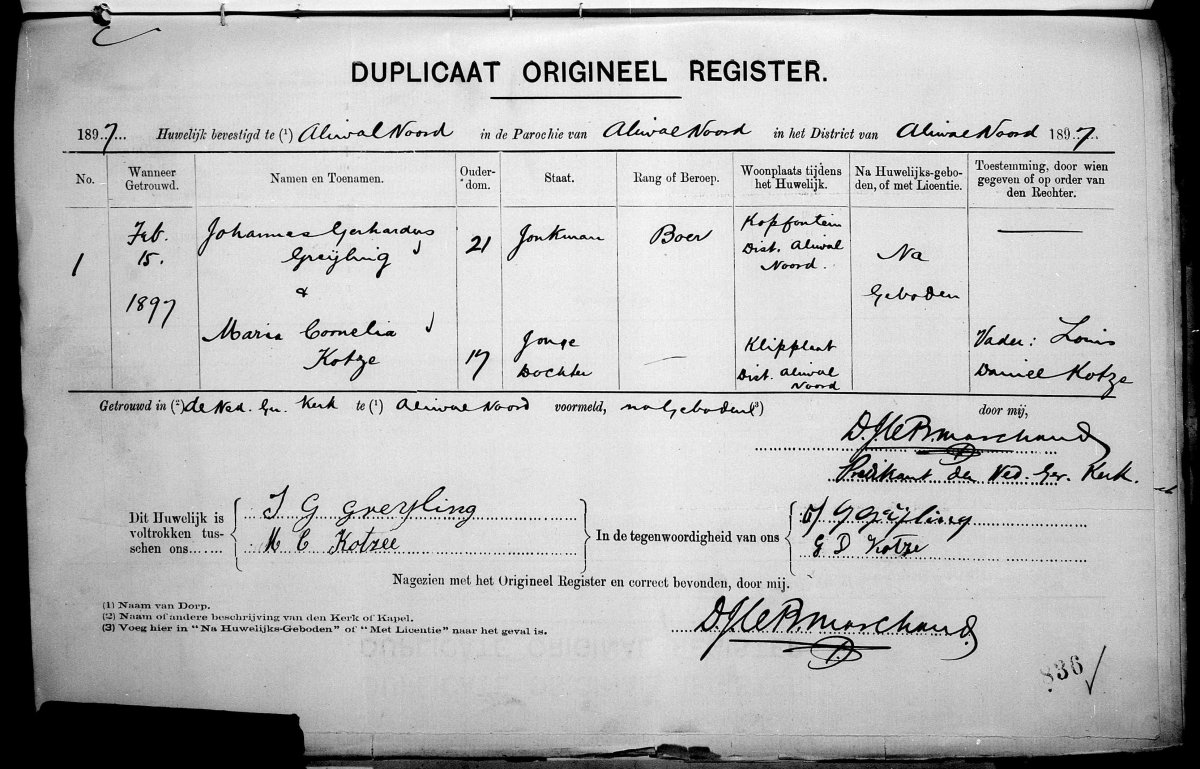 DUPLICAAT ORIGINEEL REGISTER.
1897... Huwelijk bevestigd te (1) Aliwal Noord in de Parochie van Aliwal Noord in het District van Aliwal Noord 1897.
No. Wanneer Getrouwd. Namen en Toenamen. Ouderdom. Staat. Rang of Beroep. Woonplaats tijdens het Huwelijk. Na Huwelijks-geboden, of met Licentie. Toestemming, door wien gegeven of op order van den Rechter.
1
Feb.
15.
1897
Johannes Gerhardus
Greijling
&
Maria Cornelia
Kotze
21
17
Jonkman
Jonge
Dochter
Boer
Kopfontein
Dist. Aliwal
Noord.
Klipplaat
Dist. Aliwal
Noord
Na
Geboden
Vader: Louis
Daniel Kotze
Getrouwd in (2) de Ned. Ger. Kerk te (1) Aliwal Noord voormeld, na Geboden (3) door mij,
Marchand
Predikant der Ned. Ger. Kerk.
Dit Huwelijk is
voltrokken tus-
schen ons......
J G Greyling
M C Kotzee
In de tegenwoordigheid van ons
G D Kotze
Nagezien met het Origineel Register en correct bevonden, door mij.
(1) Naam van Dorp.
(2) Naam of andere beschrijving van den Kerk of Kapel.
(3) Voeg hier in "Na Huwelijks-Geboden" of "Met Licentie" naar het geval is.
Marchand.
836